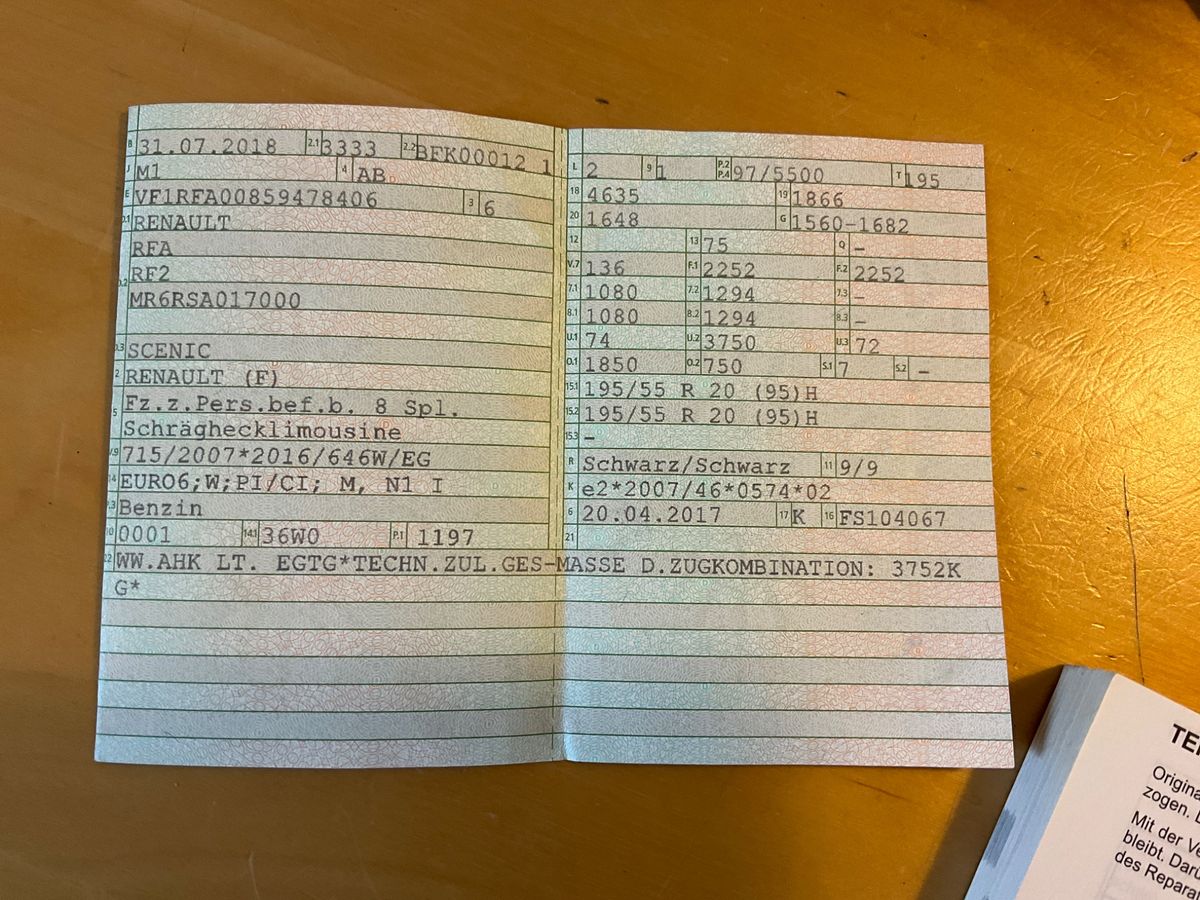 B 31.07.2018 2.1 3333 2.2 BFK00012 1
J M1 4 AB
E VF1RFA00859478406 3 6
D.1 RENAULT
RFA
D.2 RF2
MR6RSA017000
D.3 SCENIC
2 RENAULT (F)
5 Fz.z.Pers.bef.b. 8 Spl.
Schräghecklimousine
V.9 715/2007*2016/646W/EG
14 EURO6;W;PI/CI; M, N1 I
P.3 Benzin
10 0001 14.1 36W0 P.1 1197
L 2 9 1 P.2 P.4 97/5500 T 195
18 4635 19 1866
20 1648 G 1560-1682
12 13 75 Q –
V.7 136 F.1 2252 F.2 2252
7.1 1080 7.2 1294 7.3 –
8.1 1080 8.2 1294 8.3 –
U.1 74 U.2 3750 U.3 72
O.1 1850 O.2 750 S.1 7 S.2 –
15.1 195/55 R 20 (95)H
15.2 195/55 R 20 (95)H
15.3 –
R Schwarz/Schwarz 11 9/9
K e2*2007/46*0574*02
6 20.04.2017 17 K 16 FS104067
21
22 WW.AHK LT. EGTG*TECHN.ZUL.GES-MASSE D.ZUGKOMBINATION: 3752K
G*
Mit der
des